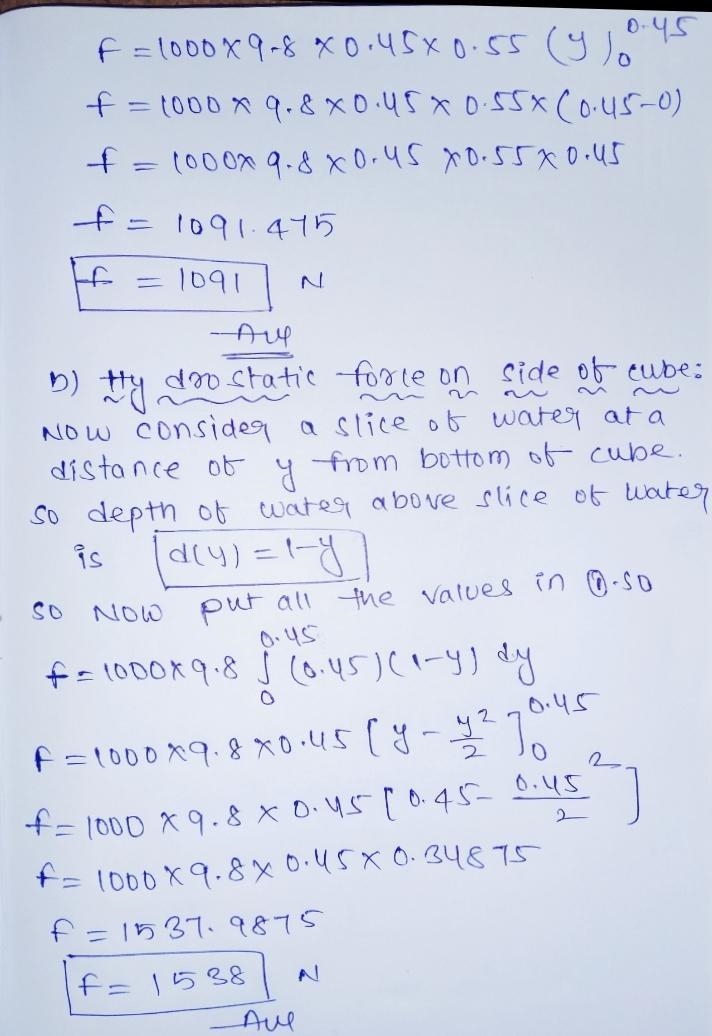 f = 1000 × 9.8 × 0.45 × 0.55 (y)₀^0.45
f = 1000 × 9.8 × 0.45 × 0.55 × (0.45-0)
f = 1000 × 9.8 × 0.45 × 0.55 × 0.45
f = 1091.475
f = 1091 N
Ans
b) Hydrostatic force on side of cube:
Now consider a slice of water at a
distance of y from bottom of cube.
so depth of water above slice of water
is d(y) = 1-y
so Now put all the values in ①. so
f = 1000 × 9.8 ∫₀^0.45 (0.45)(1-y) dy
f = 1000 × 9.8 × 0.45 [y - y²/2]₀^0.45
f = 1000 × 9.8 × 0.45 [0.45 - 0.45²/2]
f = 1000 × 9.8 × 0.45 × 0.34875
f = 1537.9875
f = 1538 N
Ans